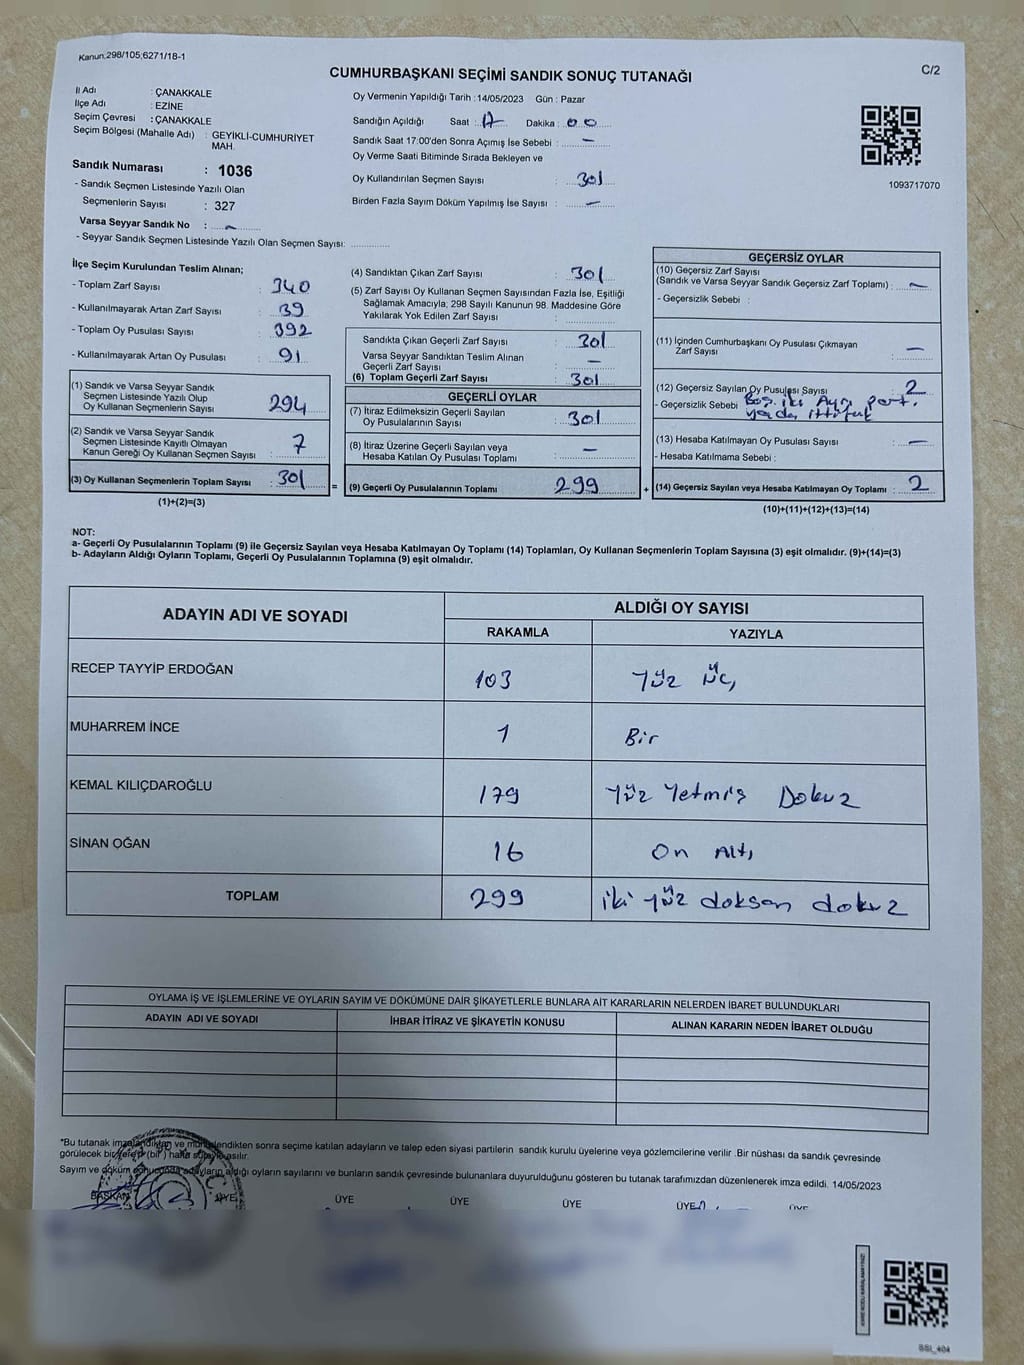 Kanun:298/105;6271/18-1
C/2
CUMHURBAŞKANI SEÇİMİ SANDIK SONUÇ TUTANAĞI
İl Adı : ÇANAKKALE
İlçe Adı : EZİNE
Seçim Çevresi : ÇANAKKALE
Seçim Bölgesi (Mahalle Adı) : GEYİKLİ-CUMHURİYET
MAH.
Sandık Numarası : 1036
- Sandık Seçmen Listesinde Yazılı Olan
Seçmenlerin Sayısı : 327
Varsa Seyyar Sandık No : -
- Seyyar Sandık Seçmen Listesinde Yazılı Olan Seçmen Sayısı:
Oy Vermenin Yapıldığı Tarih : 14/05/2023 Gün : Pazar
Sandığın Açıldığı Saat : 17 Dakika : 00
Sandık Saat 17:00'den Sonra Açımış İse Sebebi : -
Oy Verme Saati Bitiminde Sırada Bekleyen ve
Oy Kullandırılan Seçmen Sayısı : 301
Birden Fazla Sayım Döküm Yapılmış İse Sayısı : -
1093717070
İlçe Seçim Kurulundan Teslim Alınan;
- Toplam Zarf Sayısı : 340
- Kullanılmayarak Artan Zarf Sayısı : 39
- Toplam Oy Pusulası Sayısı : 392
- Kullanılmayarak Artan Oy Pusulası : 91
(1) Sandık ve Varsa Seyyar Sandık
Seçmen Listesinde Yazılı Olup
Oy Kullanan Seçmenlerin Sayısı : 294
(2) Sandık ve Varsa Seyyar Sandık
Seçmen Listesinde Kayıtlı Olmayan
Kanun Gereği Oy Kullanan Seçmen Sayısı : 7
(3) Oy Kullanan Seçmenlerin Toplam Sayısı : 301
(1)+(2)=(3)
(4) Sandıktan Çıkan Zarf Sayısı : 301
(5) Zarf Sayısı Oy Kullanan Seçmen Sayısından Fazla İse, Eşitliği
Sağlamak Amacıyla; 298 Sayılı Kanunun 98. Maddesine Göre
Yakılarak Yok Edilen Zarf Sayısı :
Sandıkta Çıkan Geçerli Zarf Sayısı : 301
Varsa Seyyar Sandıktan Teslim Alınan
Geçerli Zarf Sayısı : -
(6) Toplam Geçerli Zarf Sayısı : 301
GEÇERLİ OYLAR
(7) İtiraz Edilmeksizin Geçerli Sayılan
Oy Pusulalarının Sayısı : 301
(8) İtiraz Üzerine Geçerli Sayılan veya
Hesaba Katılan Oy Pusulası Toplamı : -
= (9) Geçerli Oy Pusulalarının Toplamı 299
GEÇERSİZ OYLAR
(10) Geçersiz Zarf Sayısı
(Sandık ve Varsa Seyyar Sandık Geçersiz Zarf Toplamı) : -
- Geçersizlik Sebebi :
(11) İçinden Cumhurbaşkanı Oy Pusulası Çıkmayan
Zarf Sayısı : -
(12) Geçersiz Sayılan Oy Pusulası Sayısı : 2
- Geçersizlik Sebebi Boş. iki Ayrı part.
yada ittifak
(13) Hesaba Katılmayan Oy Pusulası Sayısı : -
- Hesaba Katılmama Sebebi :
+ (14) Geçersiz Sayılan veya Hesaba Katılmayan Oy Toplamı : 2
(10)+(11)+(12)+(13)=(14)
NOT:
a- Geçerli Oy Pusulalarının Toplamı (9) ile Geçersiz Sayılan veya Hesaba Katılmayan Oy Toplamı (14) Toplamları, Oy Kullanan Seçmenlerin Toplam Sayısına (3) eşit olmalıdır. (9)+(14)=(3)
b- Adayların Aldığı Oyların Toplamı, Geçerli Oy Pusulalarının Toplamına (9) eşit olmalıdır.
ADAYIN ADI VE SOYADI
ALDIĞI OY SAYISI
RAKAMLA YAZIYLA
RECEP TAYYİP ERDOĞAN 103 Yüz Üç
MUHARREM İNCE 1 Bir
KEMAL KILIÇDAROĞLU 179 Yüz Yetmiş Dokuz
SİNAN OĞAN 16 On Altı
TOPLAM 299 iki yüz doksan dokuz
OYLAMA İŞ VE İŞLEMLERİNE VE OYLARIN SAYIM VE DÖKÜMÜNE DAİR ŞİKAYETLERLE BUNLARA AİT KARARLARIN NELERDEN İBARET BULUNDUKLARI
ADAYIN ADI VE SOYADI İHBAR İTİRAZ VE ŞİKAYETİN KONUSU ALINAN KARARIN NEDEN İBARET OLDUĞU
*Bu tutanak imzalandıktan ve mühürlendikten sonra seçime katılan adayların ve talep eden siyasi partilerin sandık kurulu üyelerine veya gözlemcilerine verilir .Bir nüshası da sandık çevresinde
görülecek bir yere (bir) hafta süreyle asılır.
Sayım ve döküm sonucunda adayların aldığı oyların sayılarını ve bunların sandık çevresinde bulunanlara duyurulduğunu gösteren bu tutanak tarafımızdan düzenlenerek imza edildi. 14/05/2023
BAŞKAN ÜYE ÜYE ÜYE ÜYE ÜYE ÜYE
SSI_404